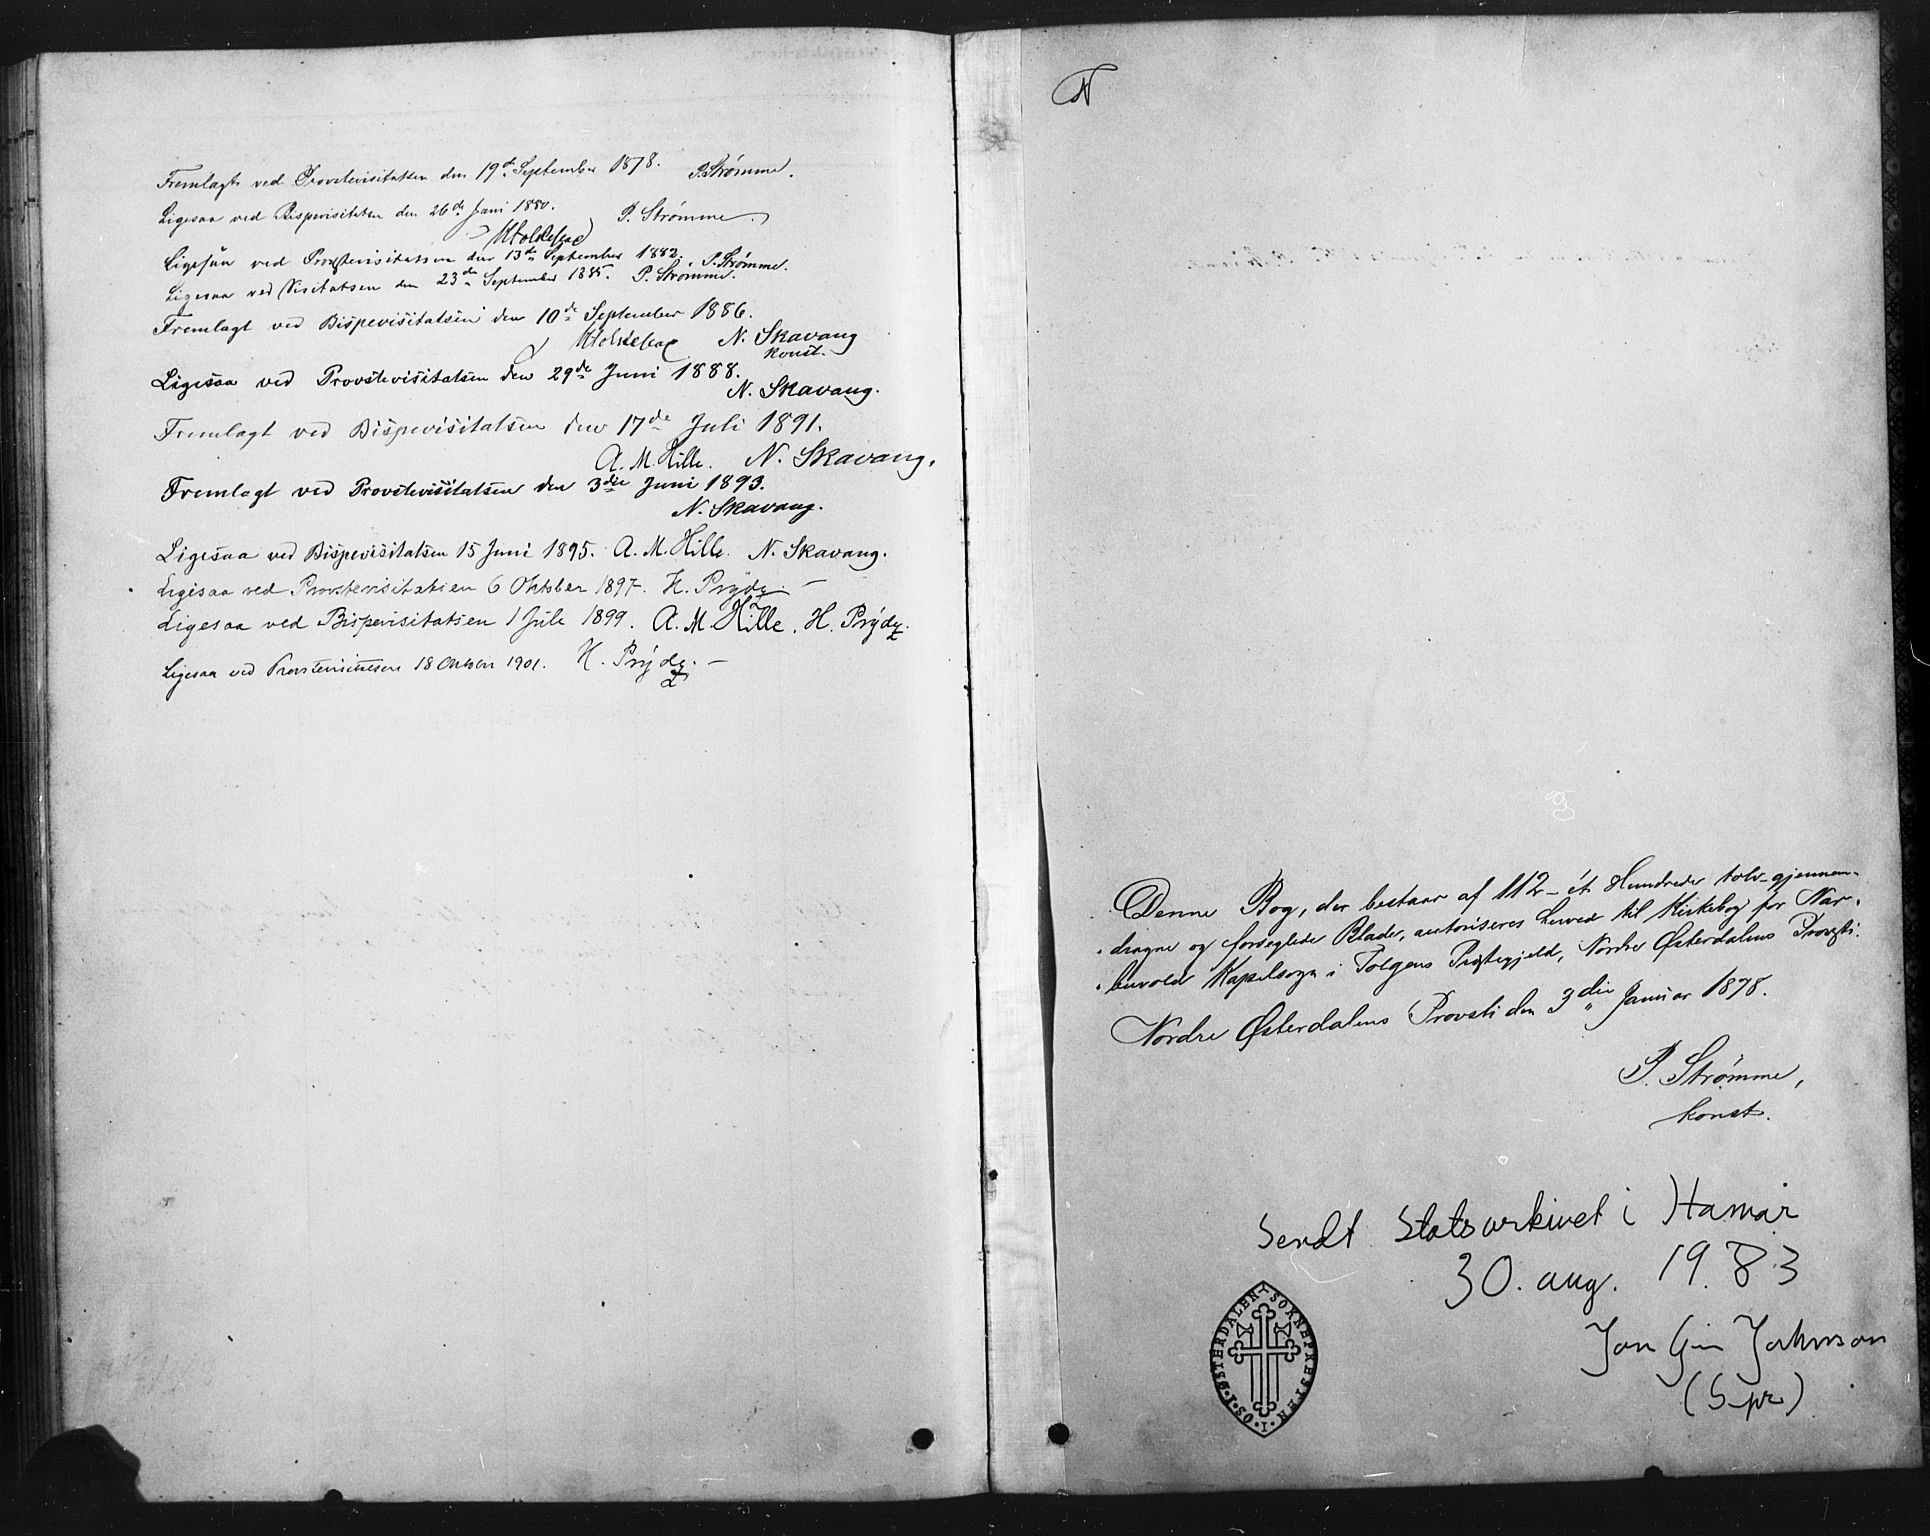 Fremlagt ved Provstevisitatsen den 19de September 1878. P. Strømme.
Ligesaa ved Bispevisitatsen den 26de Juni 1880. P. Strømme
Ligesaa ved Provstevisitatsen den 13de September 1882. P. Strømme.
Ligesaa ved Visitatsen den 23de September 1885. P. Strømme.
Fremlagt ved Bispevisitatsen den 10de September 1886.
N. Skavang
konst.
Ligesaa ved Provstevisitatsen den 29de Juni 1888.
N. Skavang.
Fremlagt ved Bispevisitatsen den 17de Juli 1891.
A. M. Hille. N. Skavang.
Fremlagt ved Provstevisitatsen den 3die Juni 1893.
N. Skavang.
Ligesaa ved Bispevisitatsen 15 Juni 1895. A. M. Hille. N. Skavang.
Ligesaa ved Provstevisitatsen 6 Oktober 1897. H. Prydz
Ligesaa ved Bispevisitatsen 1 Juli 1899. A. M. Hille. H. Prydz.
Ligesaa ved Provstevisitatsen 18 Oktober 1901. H. Prydz. –
Denne Bog, der bestaar af 112 – ét Hundrede tolv – gjennem-
dragne og forseglede Blade, autoriseres herved til Kirkebog for Nar-
buvold Kapelsogn i Tolgens Præstegjeld, Nordre Østerdalens Provsti.
Nordre Østerdalens Provsti den 3die Januar 1878.
P. Strømme,
konst.
Sendt Statsarkivet i Hamar
30. aug. 1983
Jon Johnson
(Spr)
SOKNEPRESTEN · I · OS · I · ØSTERDALEN